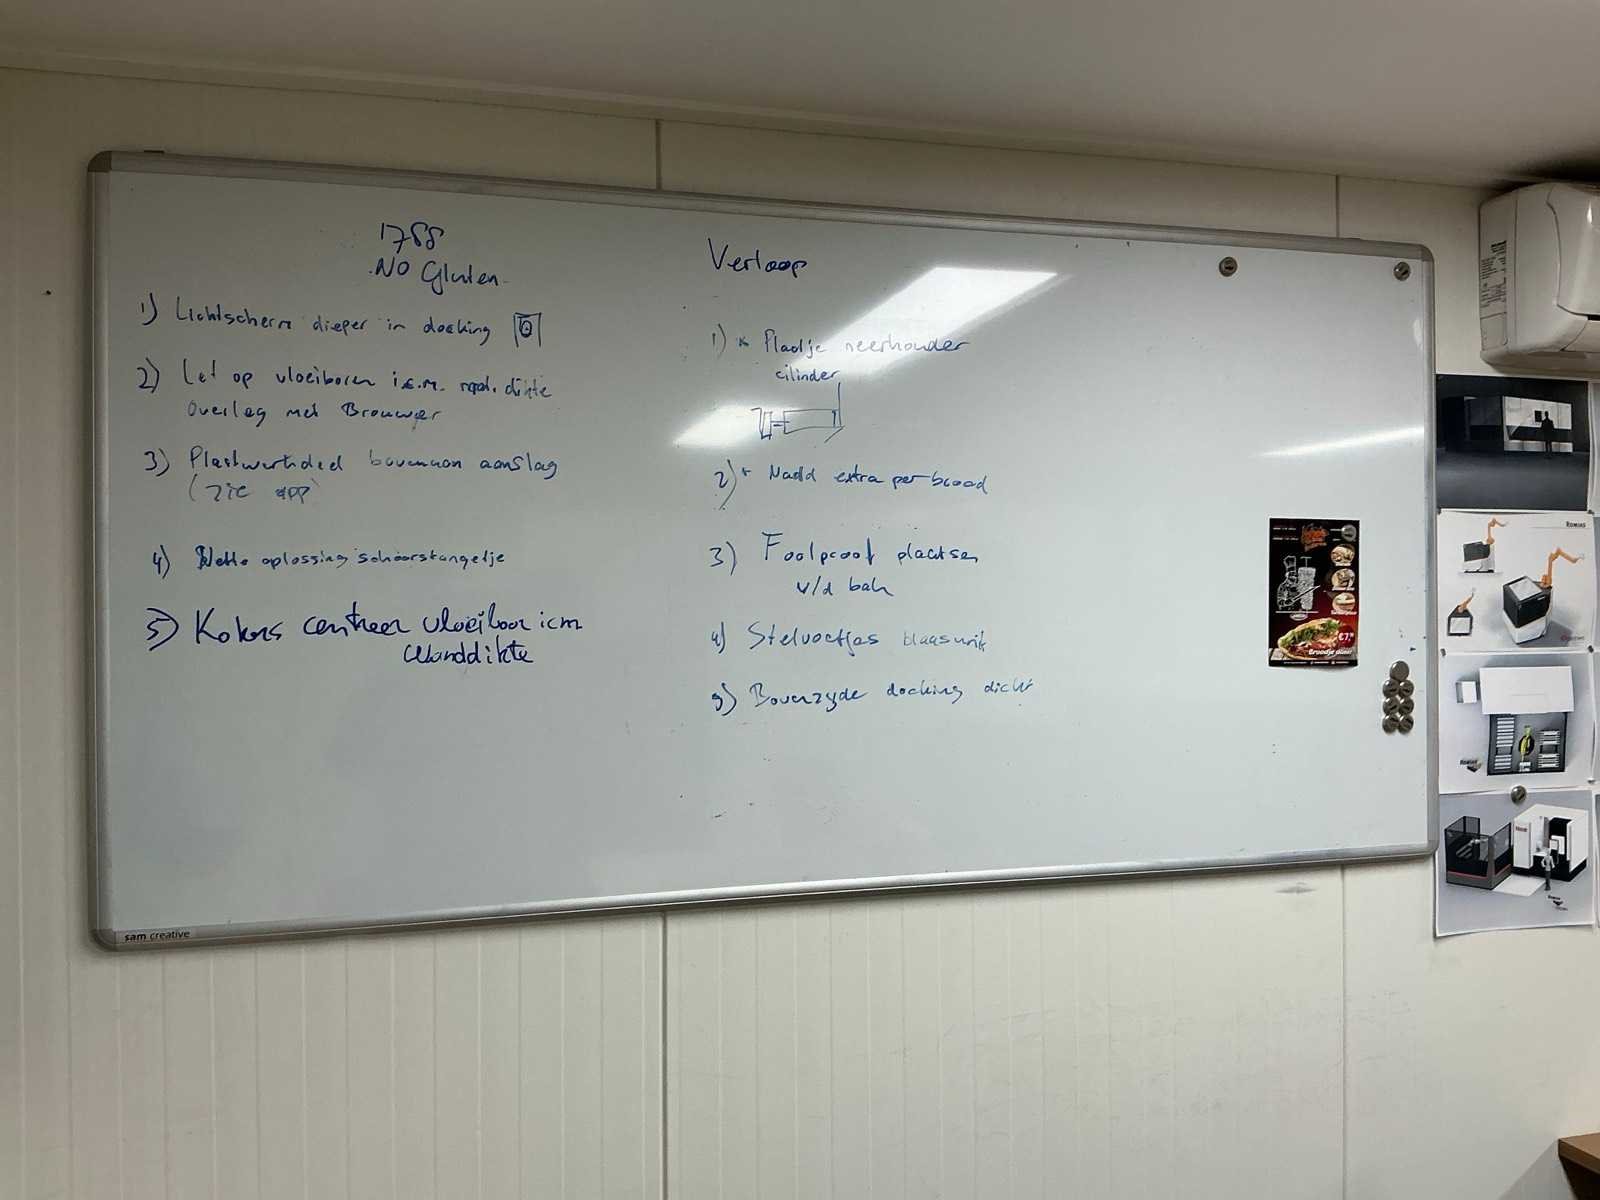 1788
NO Gluten
1) Lichtscherm dieper in docking
2) Let op vloeiboren i.c.m. mat. dikte
Overleg met Brouwer
3) bovenaan aanslag
(zie app)
4) Nette oplossing schoorstangetje
5) Kokers centreer vloeiboor icm
wanddikte
Verloop
1) * Plaatje neerhouder
cilinder
2) * Naald extra per brood
3) Foolproof plaatsen
v/d bak
4) Stelvoetjes blaasunit
5) Bovenzijde docking dicht
sam creative
ROMIAS
Broodje döner